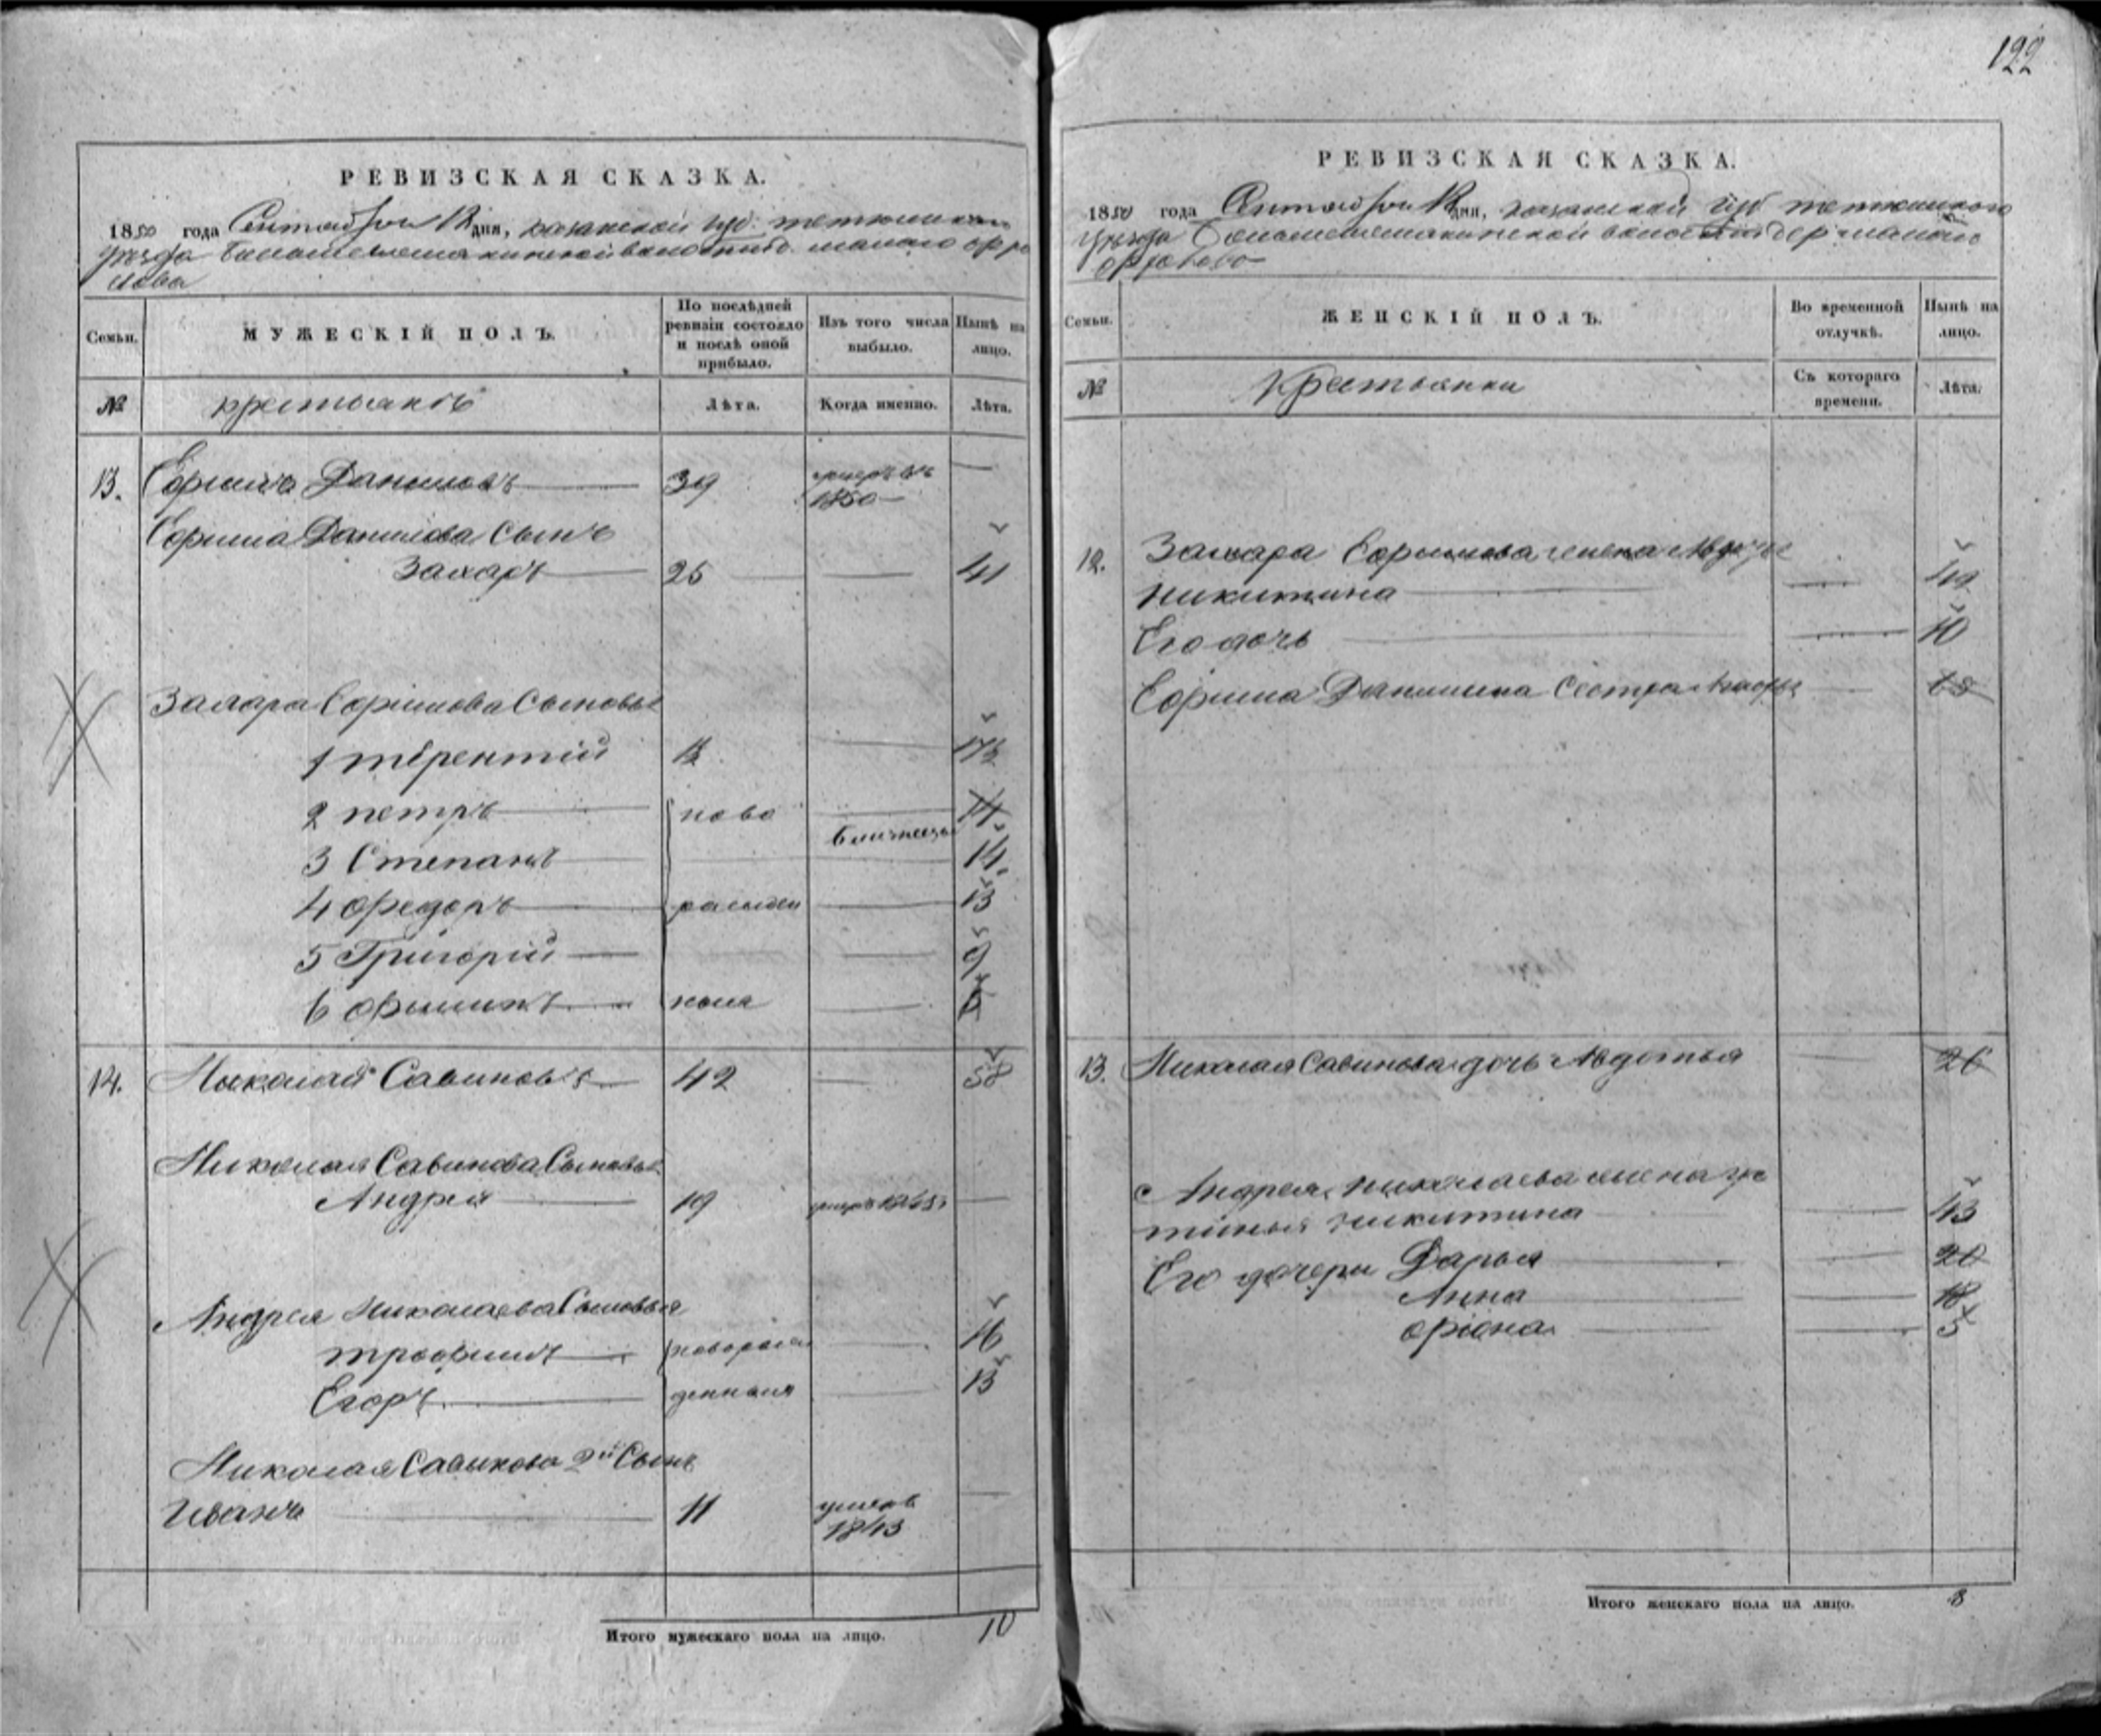 122
РЕВИЗСКАЯ СКАЗКА.
1850 года Сентября 12 дня, казанской губ. тетюшскаго
уѣзда волости д. малого
Семьи. МУЖЕСКІЙ ПОЛЪ. По послѣдней ревизіи состояло и послѣ оной прибыло. Изъ того числа выбыло. Нынѣ на лицо.
№ крестьянъ Лѣта. Когда именно. Лѣта.
13. Ефимъ Даниловъ 39 умеръ въ 1850 —
Ефима Данилова Сынъ
Захаръ 25 — 41
Захара Ефимова Сыновья
1 терентій —
2 петръ ново —
близнецы
3 Степанъ 14
4 Федоръ рожден — 13
5 Григорій — 9
6 Филипъ ныя —
14. Николай Савиновъ 42 — 58
Николая Савинова Сыновья
Андрей 19 —
Андрея Николаева Сыновья
трофимъ новорож — 16
Егоръ денныя — 13
Николая Савинова 2й Сынъ
Иванъ 11 умеръ 1843 —
Итого мужескаго пола на лицо. 10
РЕВИЗСКАЯ СКАЗКА.
1850 года Сентября 12 дня, казанской губ тетюшскаго
уѣзда волости дер малого
Семьи. ЖЕНСКІЙ ПОЛЪ. Во временной отлучкѣ. Нынѣ на лицо.
№ Крестьянки Съ котораго времени. Лѣта.
12. Захара Ефимова жена
никитина —
Его дочь — 10
Ефима Данилина Сестра —
13. Николая Савинова дочь Авдотья — 26
Андрея николаева жена ус
тинья никитина — 43
Его дочери Дарья — 20
Анна — 18
Фіона — 5
Итого женскаго пола на лицо. 8